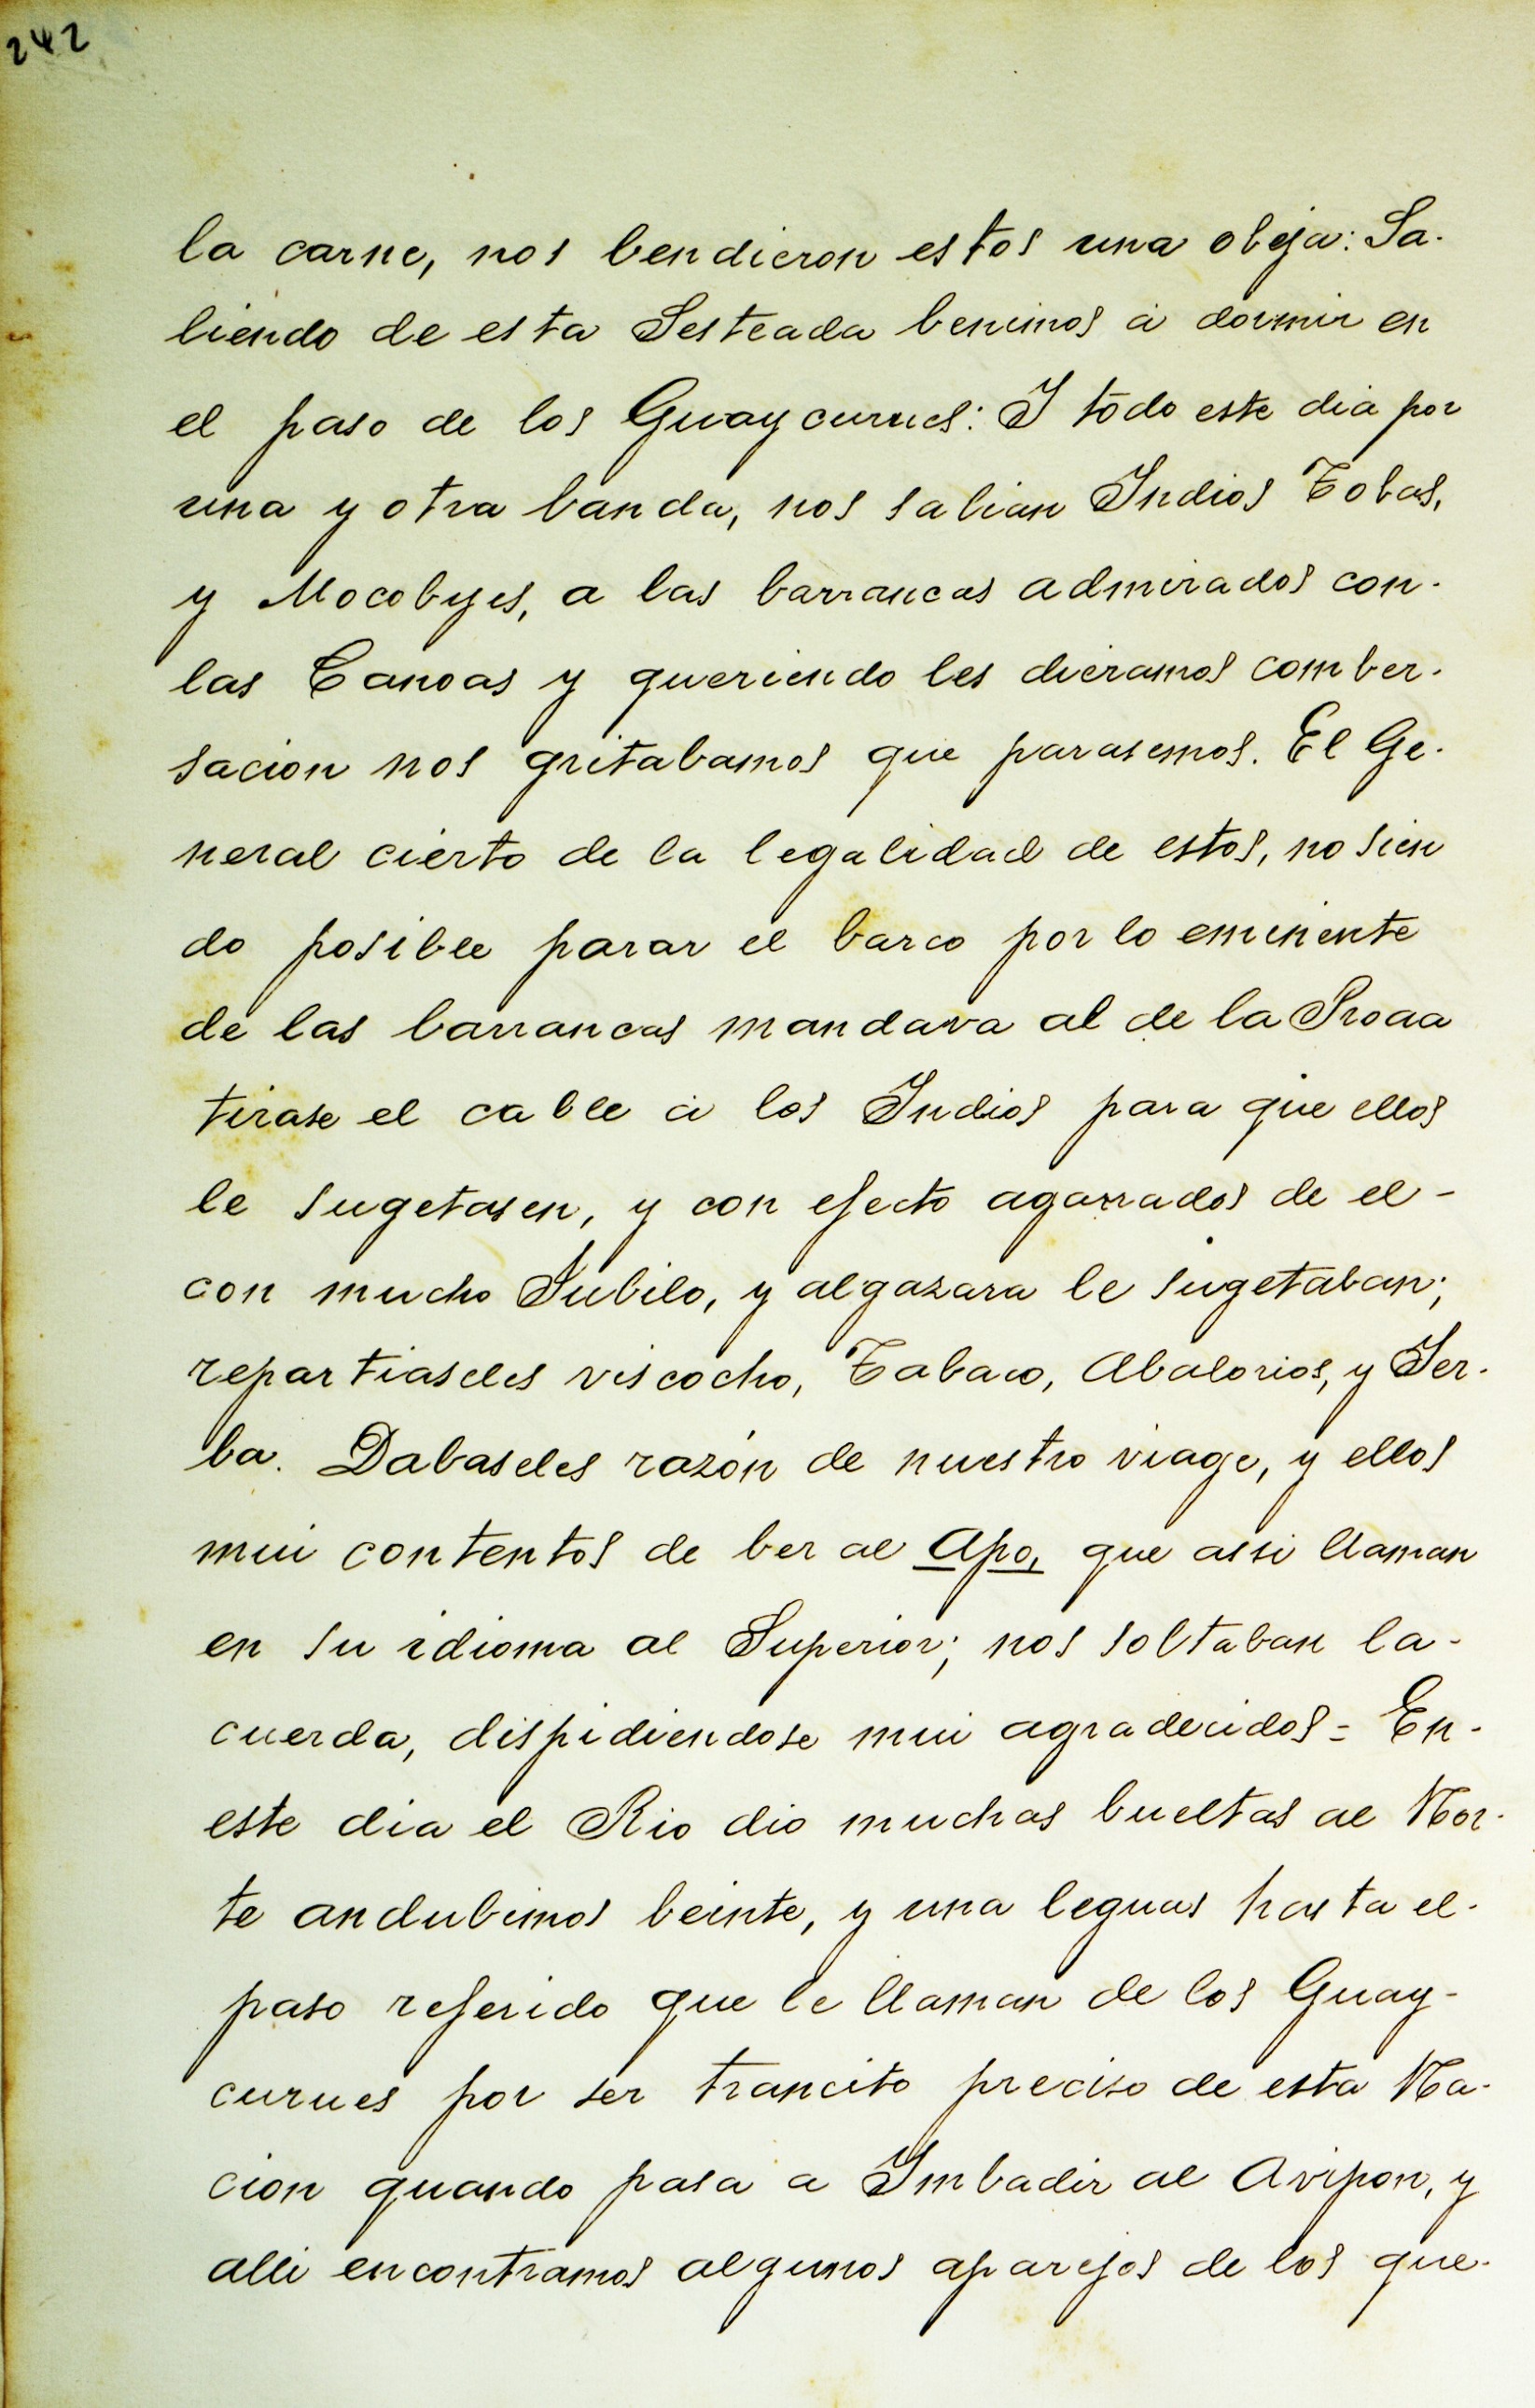 242
la carne, nos bendieron estos una obeja: Sa-
liendo de esta Sesteada benimos à dormir en
el paso de los Guaycurues: I todo este dia por
una y otra banda, nos salian Indios Tobas,
y Mocobyes, a las barrancas admirados con-
las Canoas y queriendo les dieramos comber-
sacion nos gritabamos que parasemos. El Ge-
neral cierto de la legalidad de estos, no sien
do posible parar el barco por lo eminente
de las barrancas mandava al de la Proaa
tirase el cable à los Indios para que ellos
le sugetasen, y con efecto agarrados de el-
con mucho Jubilo, y algazara le sugetaban;
repartiaseles viscocho, Tabaco, Abalorios, y Ier-
ba. Dabaseles razón de nuestro viage, y ellos
mui contentos de ber al Apo, que assi llaman
en su idioma al Superior; nos soltaban la-
cuerda, dispidiendose mui agradecidos = En-
este dia el Rio dio muchas bueltas al Nor-
te andubimos beinte, y una leguas hasta el-
paso referido que le llaman de los Guay-
curues por ser trancito preciso de esta Na-
cion quando pasa a Imbadir al Avipon, y
alli encontramos algunos aparejos de los que-